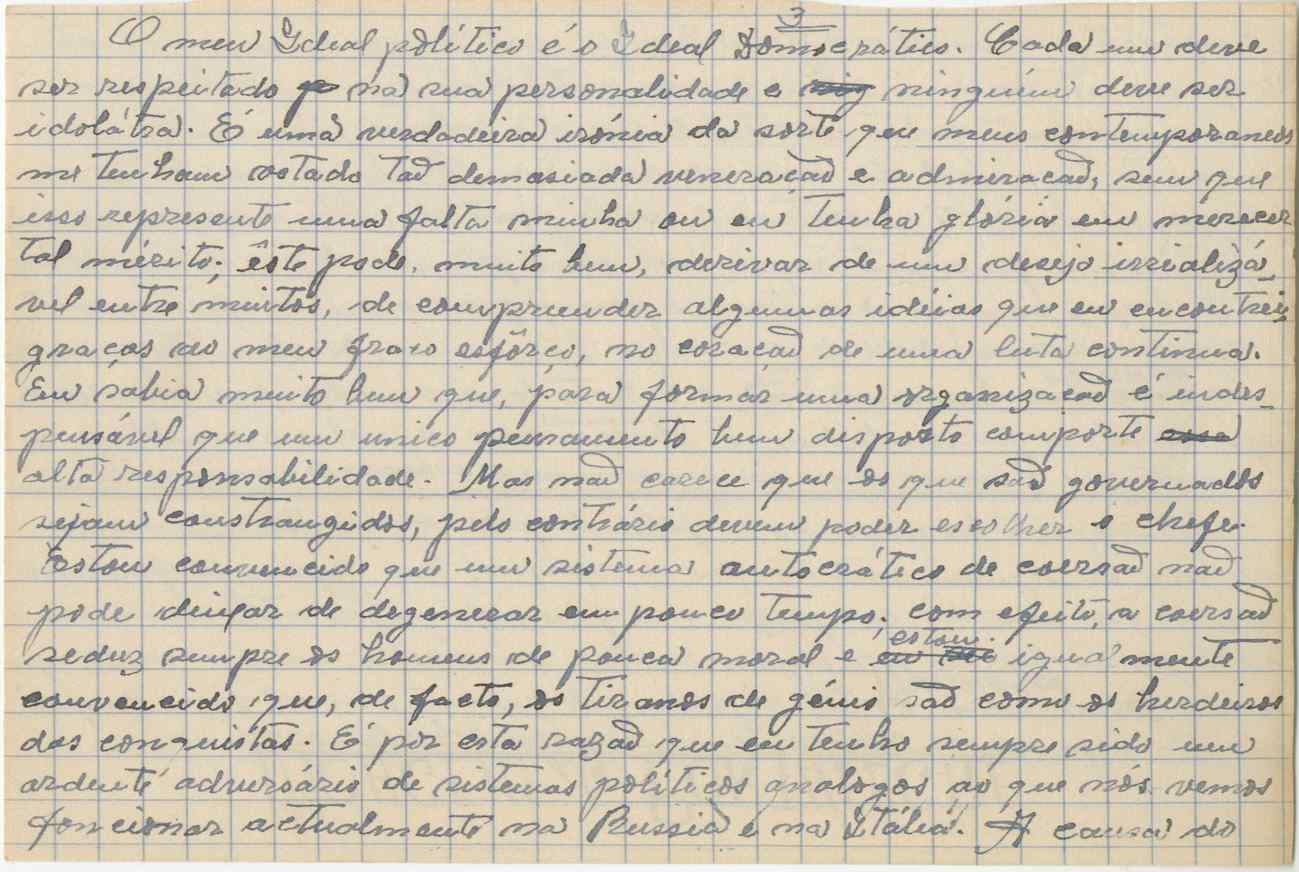 3
O meu Ideal político é o Ideal Democrático. Cada um deve
ser respeitado na sua personalidade e ninguém deve ser
idolátra. É uma verdadeira irónia da sorte que meus contemporaneos
me tenham votado tað demasiada veneraçað e admiraçað, sem que
isso represente uma falta minha ou eu tenha glória em merecer
tal mérito; êste pode, muito bem, derivar de um desejo irrealizá_
vel entre muitos, de compreender algumas idéias que eu encontrei,
graças ao meu fraco esfôrço, no coraçað de uma luta continua.
Eu sabia muito bem que, para formar uma organizaçað é indes_
pensável que um unico pensamento bem disposto comporte
alta responsabilidade. Mas nað carece que os que sað governados
sejam constrangidos, pelo contrário devem poder escolher o chefe.
Estou convencido que um sistema autocrático de coersað nað
pode deixar de degenerar em pouco tempo; com efeito, a coersað
seduz sempre os homens de pouca moral e estou igualmente
convencido que, de facto, os tiranos de génio sað como os herdeiros
das conquistas. É por esta razað que eu tenho sempre sido um
ardente adversário de sistemas políticos analogos ao que nós vemos
foncionar actualmente na Russia e na Itália. A causa do